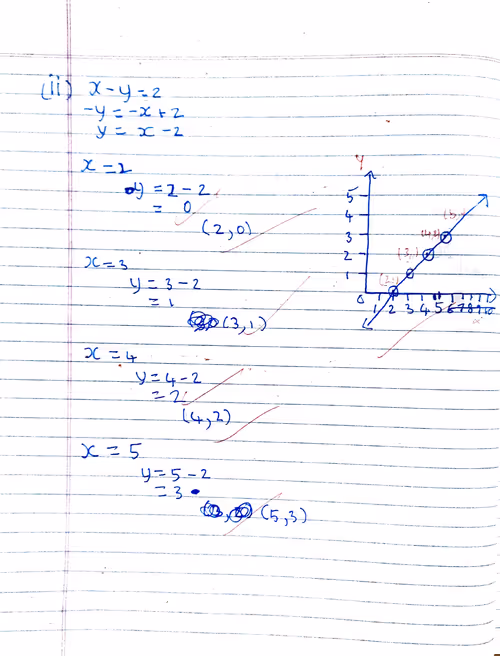 (ii) x - y = 2
-y = -x + 2
y = x - 2
x = 2
y = 2 - 2
= 0
(2,0)
x = 3
y = 3 - 2
= 1
(3,1)
x = 4
y = 4 - 2
= 2
(4,2)
x = 5
y = 5 - 2
= 3
(5,3)
Y
5
4
3
2
1
0 1 2 3 4 5 6 7 8 9 10